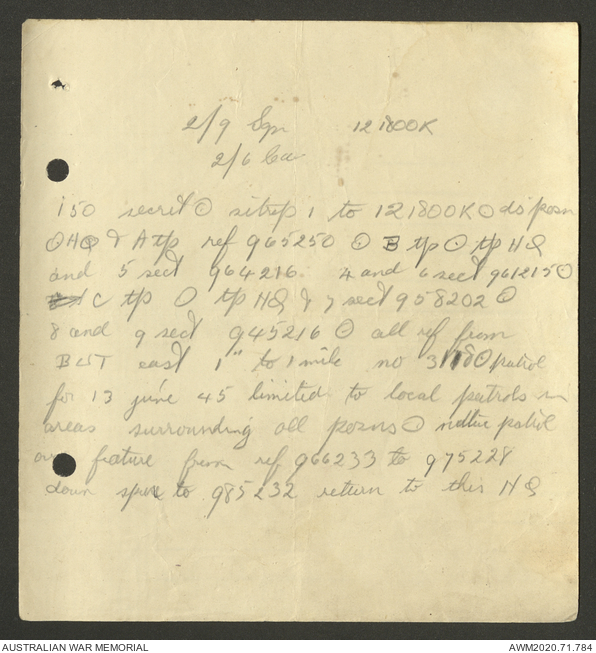 2/9 Sqn 121800K
2/6 Cav
150 secret ⊙ sitrep 1 to 121800K ⊙ disposn
⊙ HQ & A tp ref 965250 ⊙ B tp ⊙ tp HQ
and 5 sect 964216 4 and 6 sect 961215 ⊙
C tp ⊙ tp HQ & 7 sect 958202 ⊙
8 and 9 sect 945216 ⊙ all ref from
BUT east 1" to 1 mile no 3118 ⊙ patrol
for 13 june 45 limited to local patrols in
areas surrounding all posns ⊙ native patrol
feature from ref 966233 to 975228
down spur to 985232 return to this HQ
AUSTRALIAN WAR MEMORIAL AWM2020.71.784